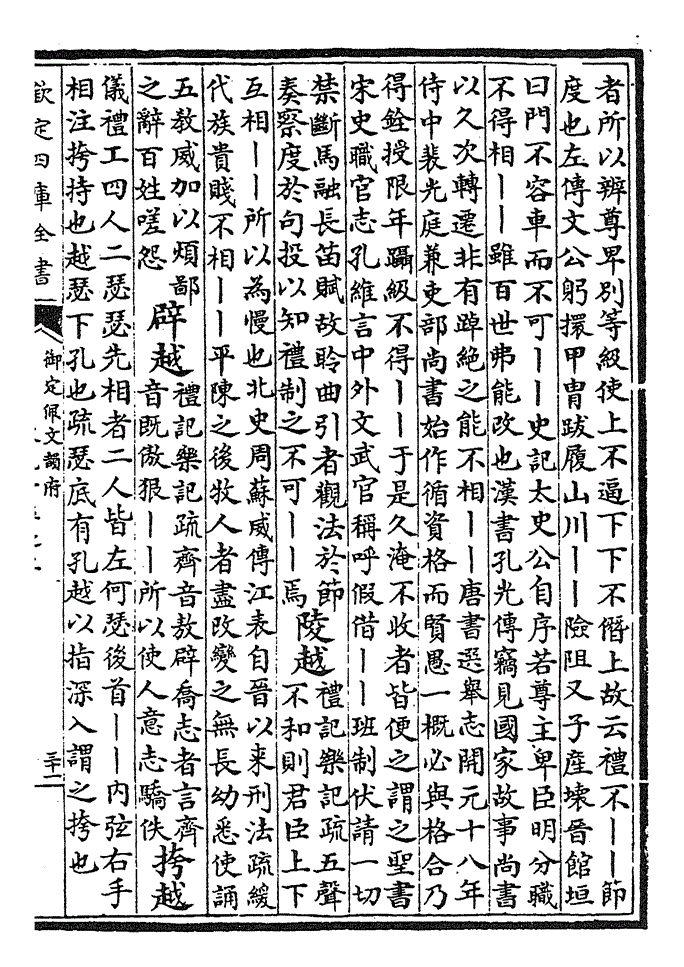 者所以辨尊卑別等級使上不逼下下不僭上故云禮不丨丨節
度也左傳文公躬擐甲冑跋履山川丨丨險阻又子產壞晉館垣
曰門不容車而不可丨丨史記太史公自序若尊主卑臣明分職
不得相丨丨雖百世弗能改也漢書孔光傳竊見國家故事尚書
以久次轉遷非有踔絶之能不相丨丨唐書選舉志開元十八年
侍中裴光庭兼吏部尚書始作循資格而賢愚一概必與格合乃
得銓授限年躡級不得丨丨于是久淹不收者皆便之謂之聖書
宋史職官志孔維言中外文武官稱呼假借丨丨班制伏請一切
禁斷馬融長笛賦故聆曲引者觀法於節
奏察度於句投以知禮制之不可丨丨焉
陵越
禮記樂記疏五聲
不和則君臣上下
互相丨丨所以為慢也北史周蘇威傳江表自晉以來刑法疏緩
代族貴賤不相丨丨平陳之後牧人者盡改變之無長幼悉使誦
五教威加以煩鄙
之辭百姓嗟怨
辟越
禮記樂記疏齊音敖辟喬志者言齊
音既傲狠丨丨所以使人意志驕佚
挎越
儀禮工四人二瑟瑟先相者二人皆左何瑟後首丨丨內弦右手
相注挎持也越瑟下孔也疏瑟底有孔越以指深入謂之挎也
欽定四庫全書
御定佩文韻府